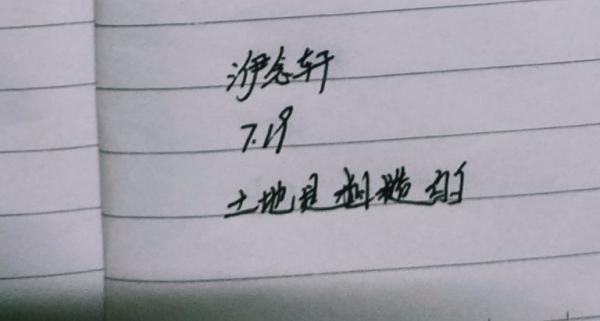 伊念轩
7.19
土地是粗糙的